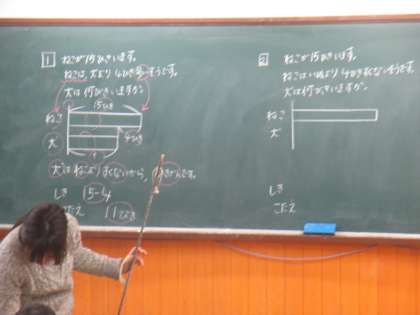 1 ねこが15ひきいます。
ねこは、犬より4ひき多いそうです。
犬は何びきいますか。
15ひき
ねこ
犬
4ひき
犬はねこよりすくないから、ひきざんです。
しき 15-4
こたえ 11ぴき
2 ねこが15ひきいます。
ねこはいぬより4ひきすくないそうです。
犬は何びきいますか。
ねこ
犬
しき
こたえ